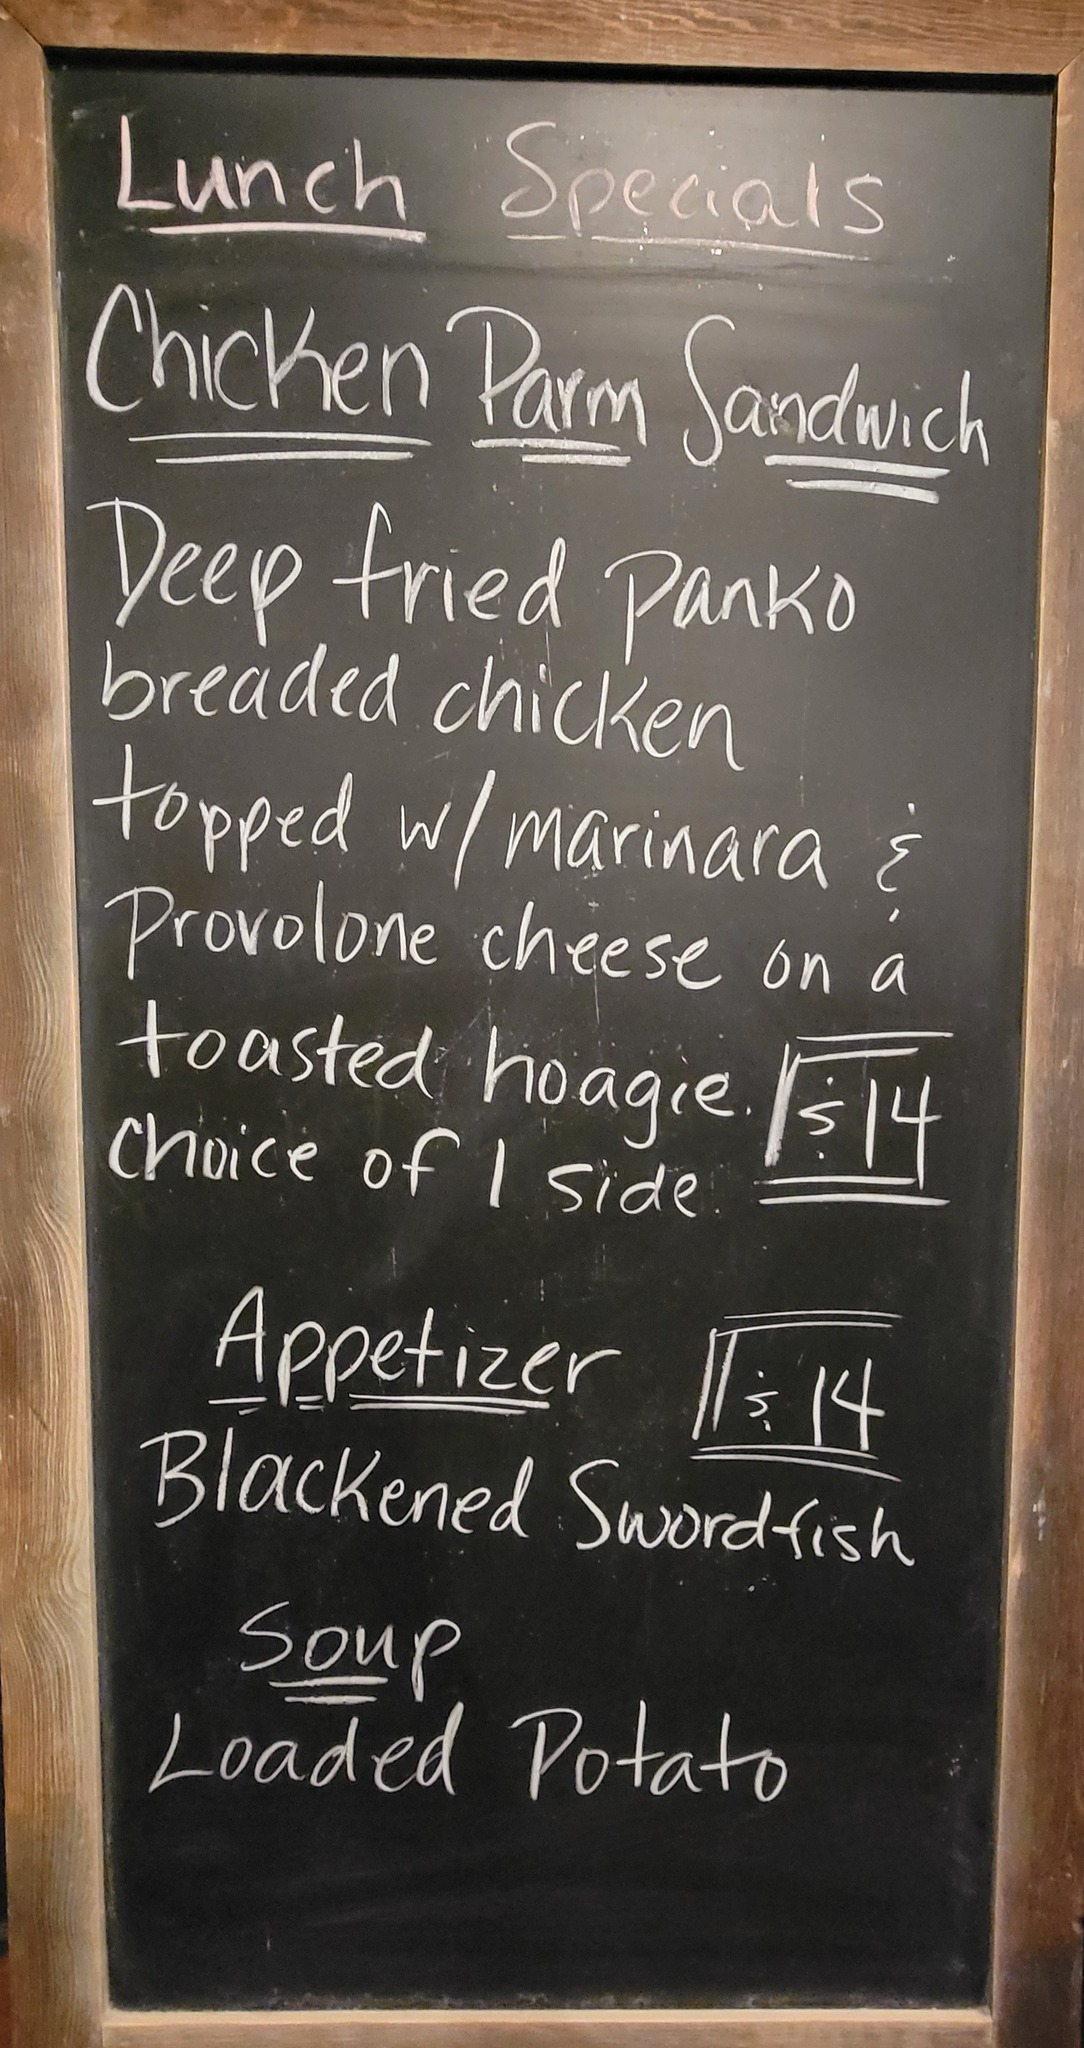 Lunch Specials
Chicken Parm Sandwich
Deep fried panko
breaded chicken
topped w/ marinara &
Provolone cheese on a
toasted hoagie. $14
choice of 1 side.
Appetizer $14
Blackened Swordfish
Soup
Loaded Potato